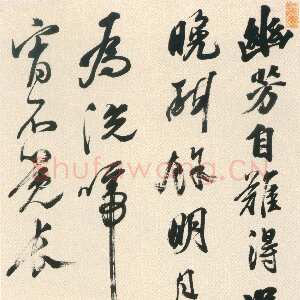 幽芳自難得
晚明月
為洗啼
宵不覺長
shufawang.CN